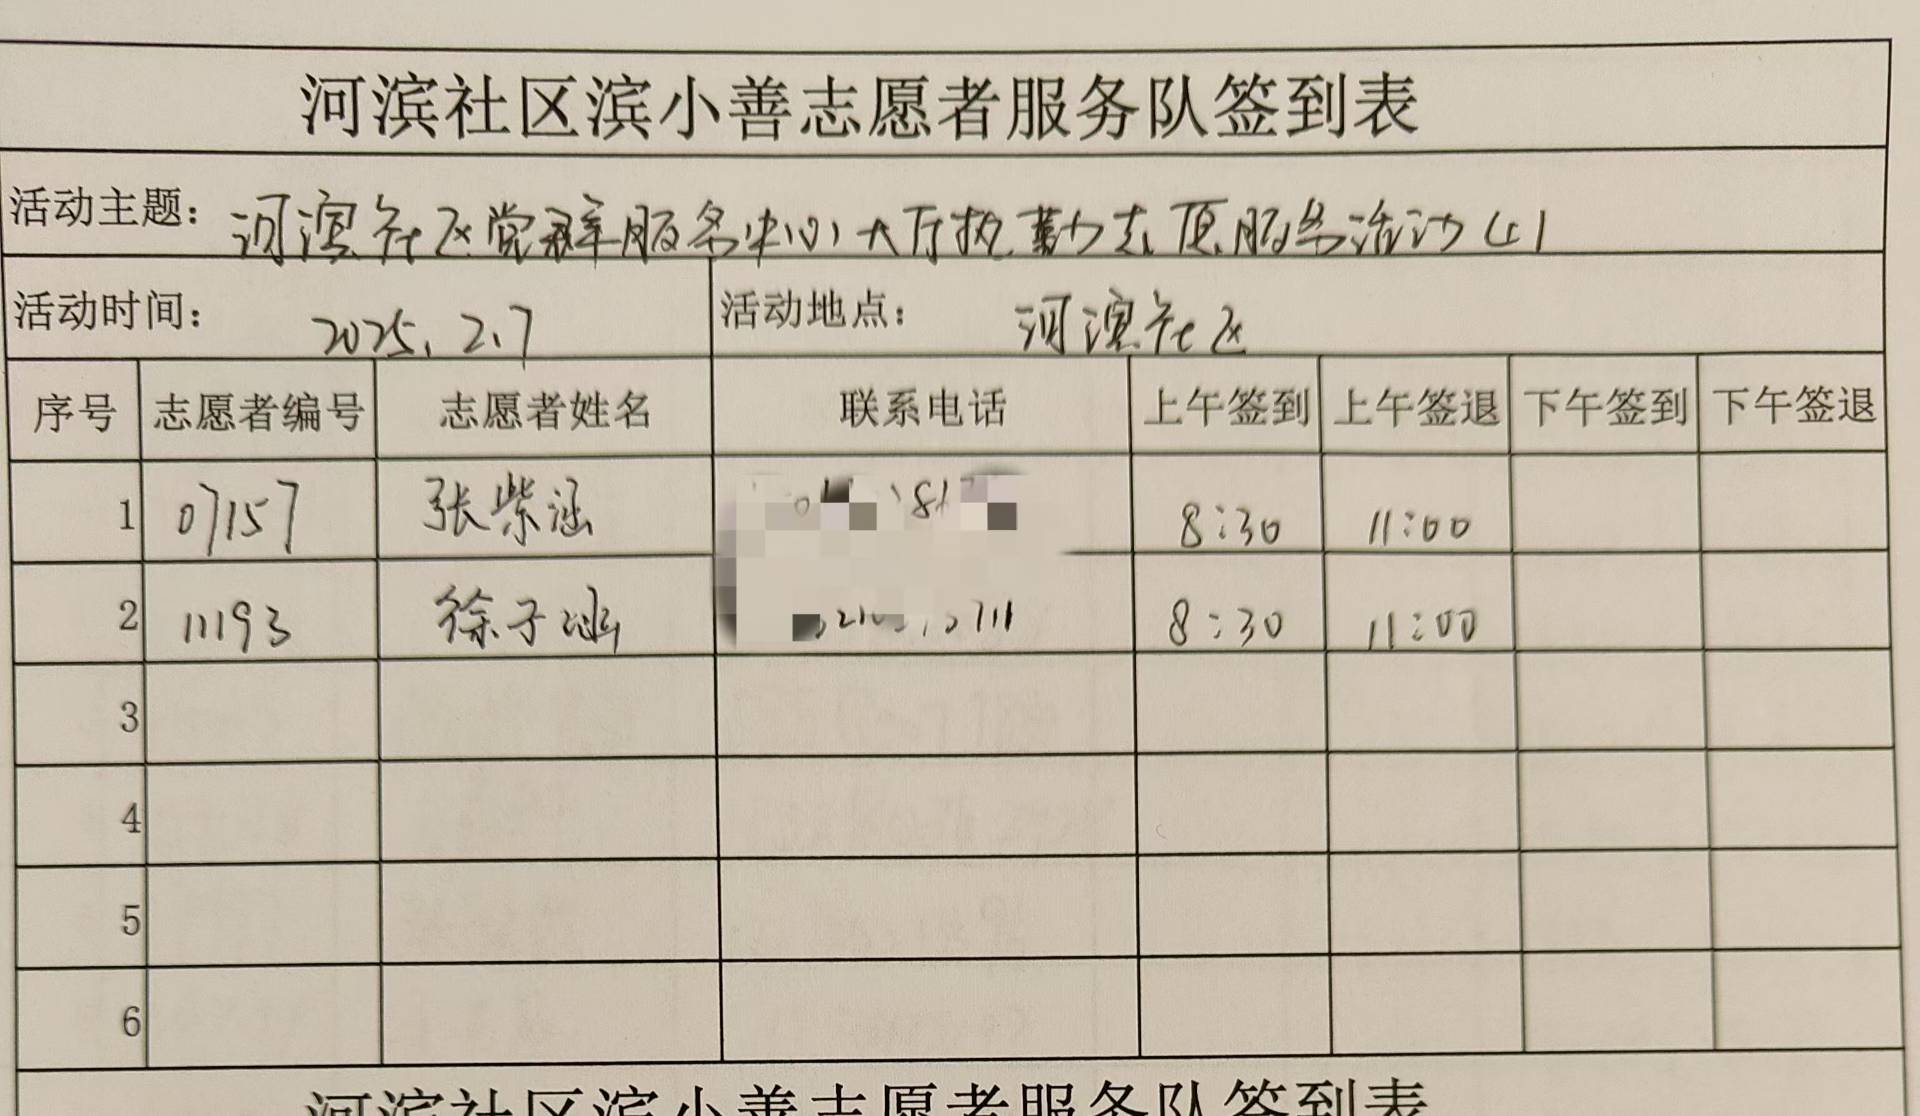 河滨社区滨小善志愿者服务队签到表
活动主题：河滨社区党群服务中心大厅执勤志愿服务活动
活动时间： 2025.2.7 活动地点： 河滨社区
序号 志愿者编号 志愿者姓名 联系电话 上午签到 上午签退 下午签到 下午签退
1 07157 张紫涵 8:30 11:00
2 11193 徐子涵 8:30 11:00
3
4
5
6
河滨社区滨小善志愿者服务队签到表